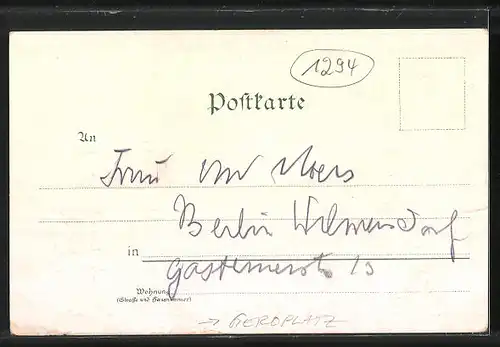 1294
Postkarte
An
Frau
Berlin Wilmersdorf
in
Gasteinerstr 13
Wohnung
(Straße und Hausnummer)
→ GEROPLATZ